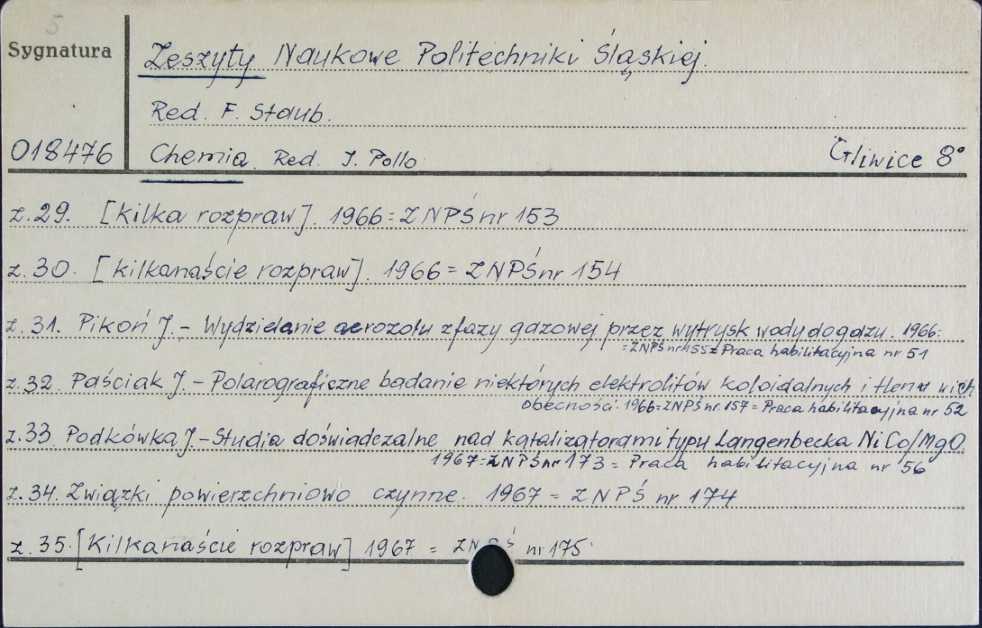 5
Sygnatura
Zeszyty Naukowe Politechniki Śląskiej.
Red. F. Staub.
018476 Chemia. Red. J. Pollo Gliwice 8°
z. 29. [Kilka rozpraw]. 1966 = ZNPŚ nr 153
z. 30. [kilkanaście rozpraw]. 1966 = ZNPŚ nr 154
z. 31. Pikoń J. - Wydzielanie aerozolu z fazy gazowej przez wytrysk wody do gazu. 1966 =
= ZNPŚ nr 155 = Praca habilitacyjna nr 51
z. 32. Paściak J. - Polarograficzne badanie niektórych elektrolitów koloidalnych i tlenu w ich
obecności. 1966 = ZNPŚ nr 157 = Praca habilitacyjna nr 52
z. 33. Podkówka J. - Studia doświadczalne nad katalizatorami typu Langenbecka NiCo/MgO.
1967 = ZNPŚ nr 173 = Praca habilitacyjna nr 56
z. 34. Związki powierzchniowo czynne. 1967 = ZNPŚ nr 174
z. 35. [Kilkanaście rozpraw] 1967 = ZNPŚ nr 175